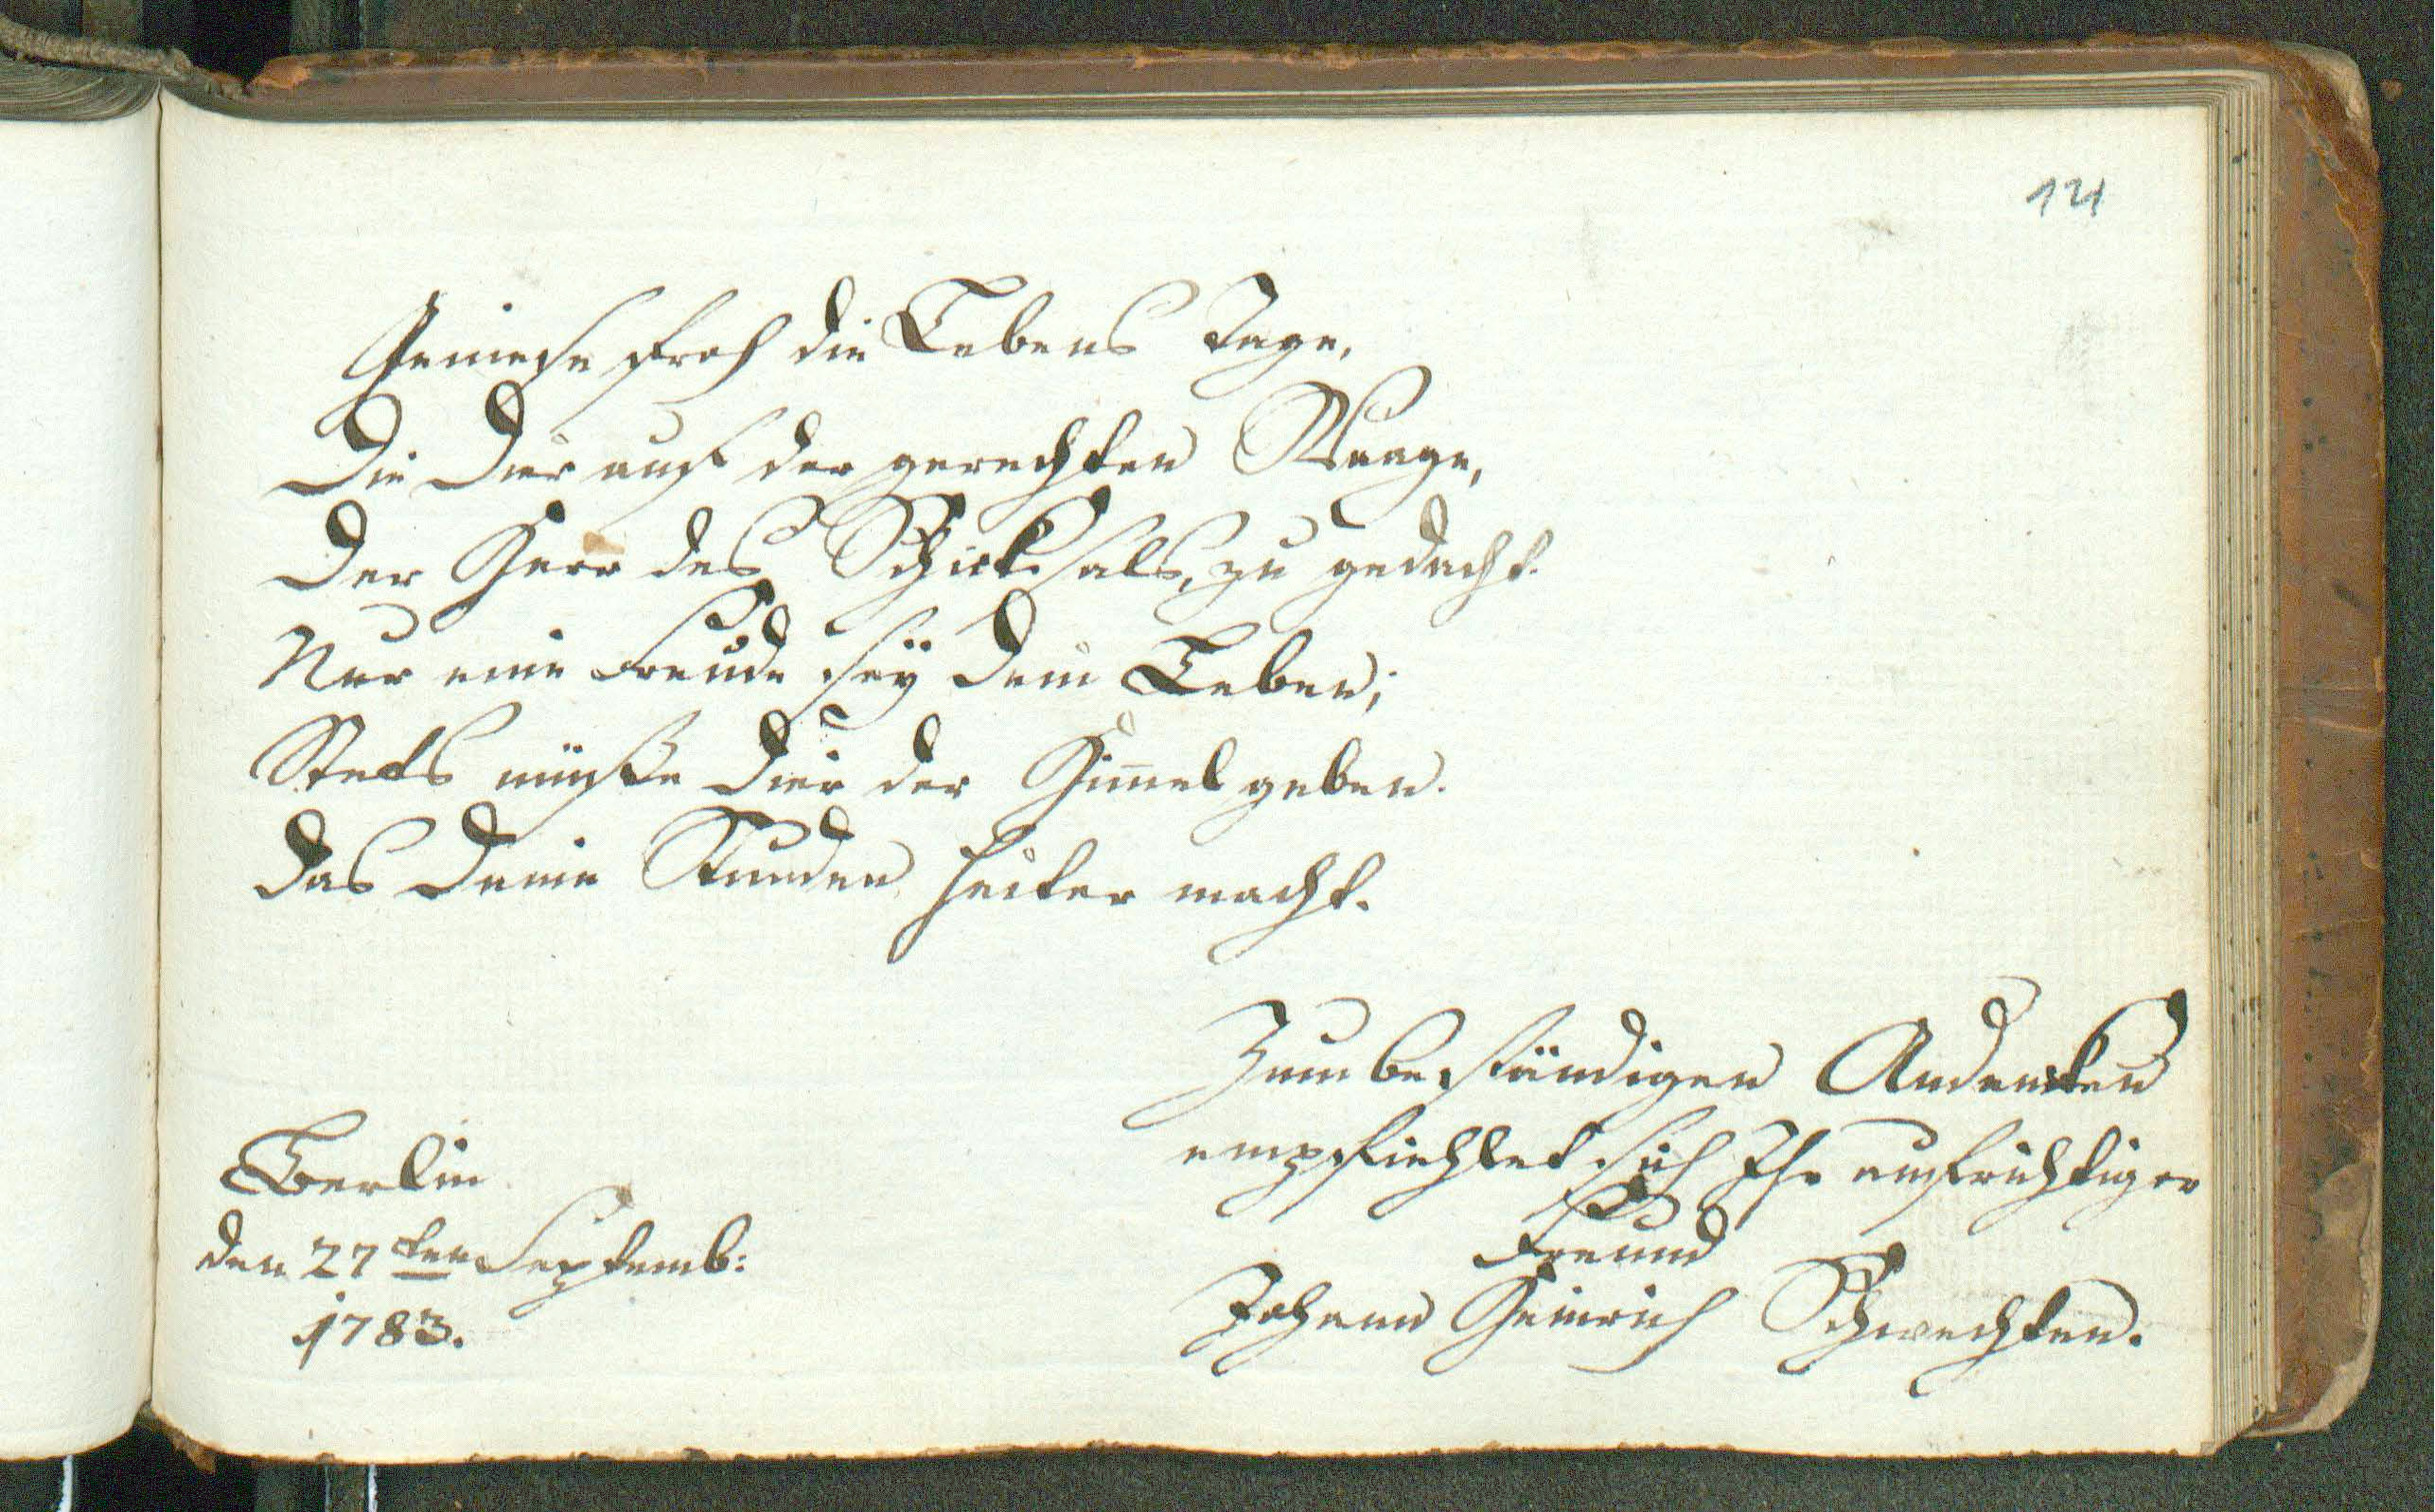 121
Geniese froh die Lebens Tage,
Die Dier auf der gerechten Waage,
Der Herr des Schicksals, zu gedacht.
Nur eine Freude sey Dein Leben;
Stets müsse Dier der Him̄el geben.
Das Deine Stunden heiter macht.
Zum beständigen Andencken
empfiehlet sich Ihr aufrichtiger
Freund
Johann Heinrich Schwechten.
Berlin
den 27ten Septemb:
1783.